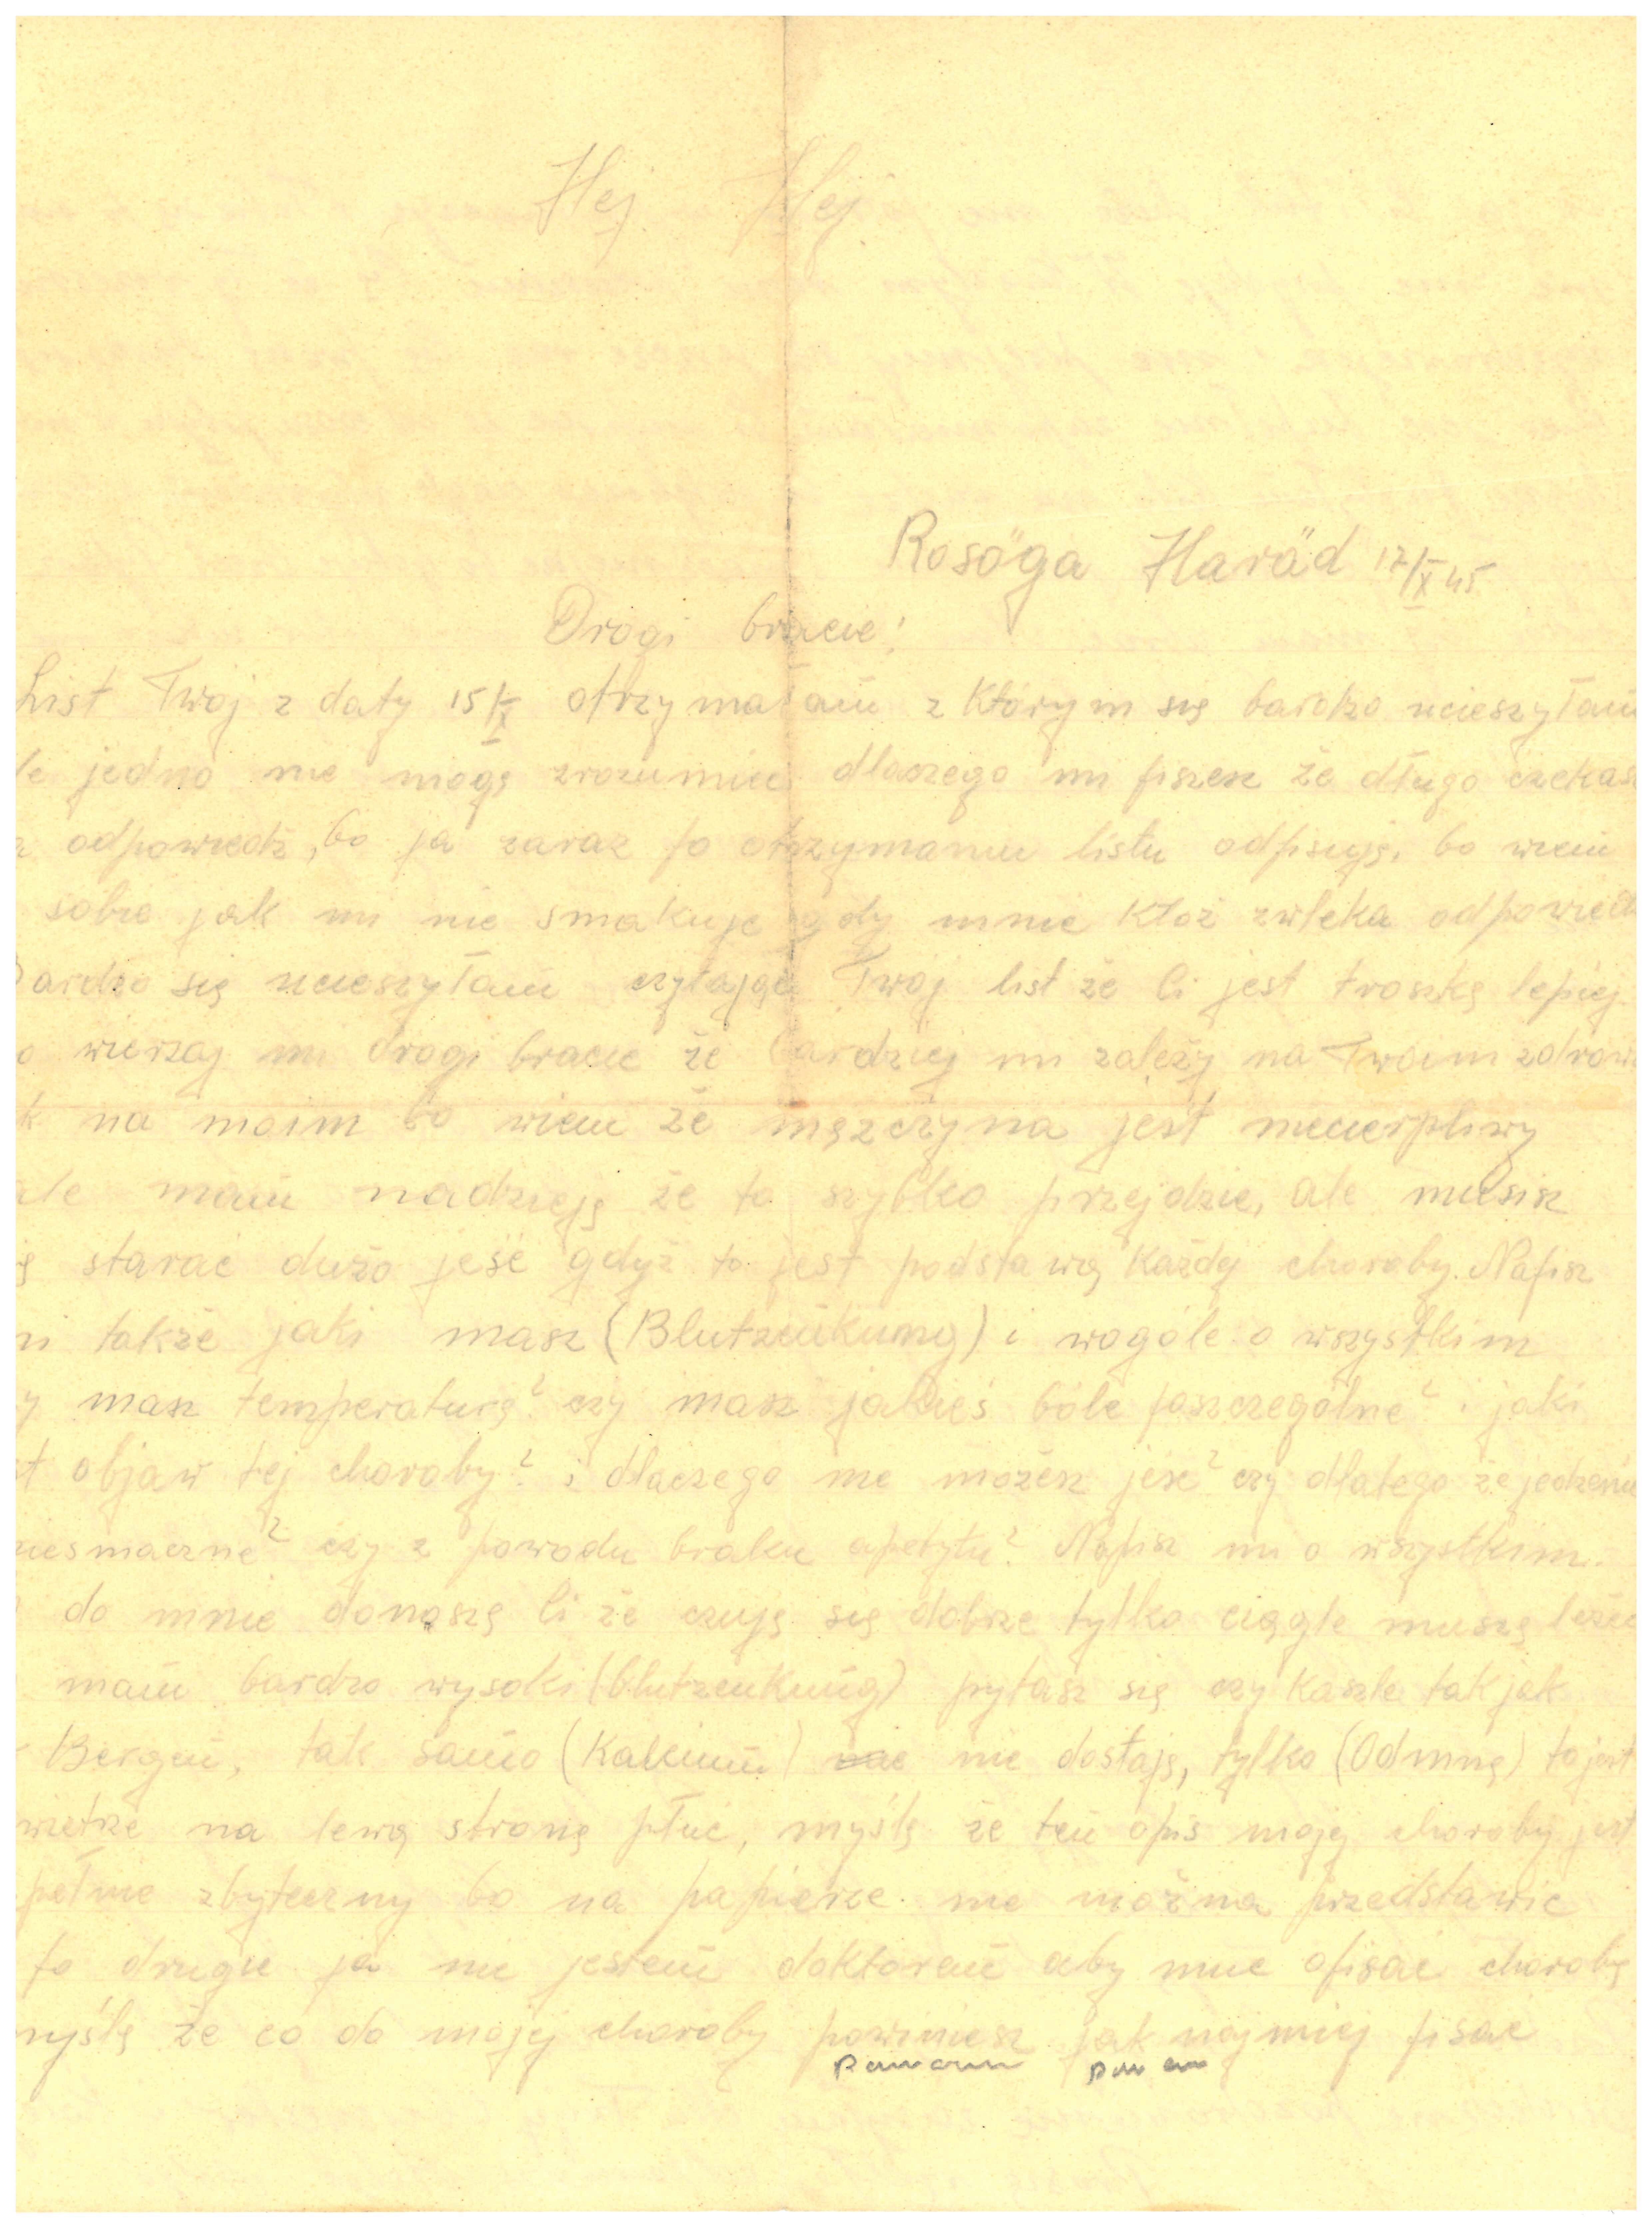 Hej Hej
Rosöga Haräd 17/X 45
Drogi bracie!
List Twoj z daty 15/X otrzymałam z którym się bardzo ucieszyłam
le jedno nie mogę zrozumieć dlaczego mi piszesz że długo czekasz
odpowiedź, bo ja zaraz po otrzymaniu listu odpisuję, bo wiem
sobie jak mi nie smakuje gdy mnie ktoś zwleka odpowiedź
Bardzo się ucieszyłam czytając Twój list że Ci jest troszkę lepiej.
o wierzaj mi drogi bracie że bardziej mi zależy na Twoim zdrowi
k na moim bo wiem że męzczyzna jest niecierpliwy
ale mam nadzieję że to szybko przejdzie, ale musisz
ę starać dużo jeść gdyż to jest podstawą każdej choroby. Napisz
mi także jaki masz (Blutzenkung) i wogóle o wszystkim
y masz temperaturę? czy masz jakieś bóle poszczególne? i jaki
st objaw tej choroby? i dlaczego nie możesz jeść? czy dlatego że jedzenie
niesmaczne? czy z powodu braku apetytu? Napisz mi o wszystkim.
do mnie donoszę Ci że czuję się dobrze tylko ciągle muszę leżeć
mam bardzo wysoki (blutzenkung) pytasz się czy kaszle tak jak
Bergen, tak samo (Kalcium) nie dostaję, tylko (Odmnę) to jest
wietrze na lewą stronę płuc, myślę że ten opis mojej choroby jest
pełnie zbyteczny bo na papierze nie można przedstawić
po drugie ja nie jestem doktorem aby móc opisać chorobę
myślę że co do mojej choroby powiniesz jak najmiej pisać